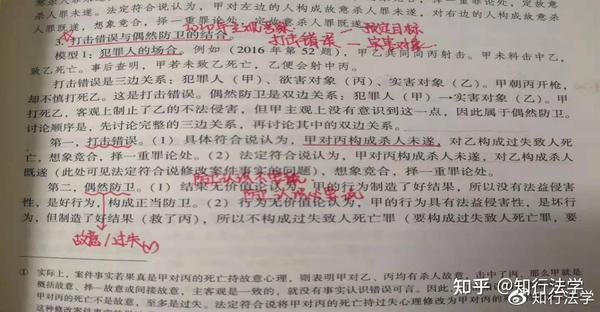 意杀人罪未遂，想象竞合，择一重罪论处。
人罪既遂
法定符合说认为，甲对左边的人构成故意杀人罪未遂，对右边的人构成故意杀
3. 打击错误与偶然防卫的结合。
打击错误 — 预定目标
实害对象
模型1：犯罪人的场合。例如（2016年第52题），甲乙共同向丙射击。甲未料击中乙，
致乙死亡。事后查明，甲若未致乙死亡，乙便会射中丙。
打击错误是三边关系：犯罪人（甲）、欲害对象（丙）、实害对象（乙）。甲朝丙开枪，
却不慎打死乙。这是打击错误。偶然防卫是双边关系：犯罪人（甲）—实害对象（乙）。甲
打死乙，客观上制止了乙的不法侵害，但甲主观上没有意识到这一点，因此属于偶然防卫。
讨论顺序是，先讨论完整的三边关系，再讨论其中的双边关系。
第一，打击错误。（1）具体符合说认为，甲对丙构成杀人未遂，对乙构成过失致人死
亡，想象竞合，择一重罪论处。（2）法定符合说认为，甲对丙构成杀人未遂，对乙构成杀人
既遂（此处可见法定符合说修改案件事实的问题），想象竞合，择一重罪论处。
第二，偶然防卫。（1）结果无价值论认为，甲的行为制造了好结果，所以没有法益侵害
性，是好行为，构成正当防卫。（2）行为无价值论认为，甲的行为具有法益侵害性，是坏行
为，但制造了好结果（救了丙），所以不构成过失致人死亡罪（要构成过失致人死亡罪，要
故意/过失
① 实际上，案件事实若果真是甲对丙的死亡持故意心理，则表明甲对乙、丙均有杀人故意，击中了丙，那么甲就是
概括故意、择一故意或间接故意，主客观是一致的，就没有事实认识错误可言。因此
甲对丙的死亡不是故意，至多是过失。法定符合说将甲对丙的死亡持过失心理修改为甲对丙的死
这种修改案件事实的
知乎 @知行法学
@知行法学